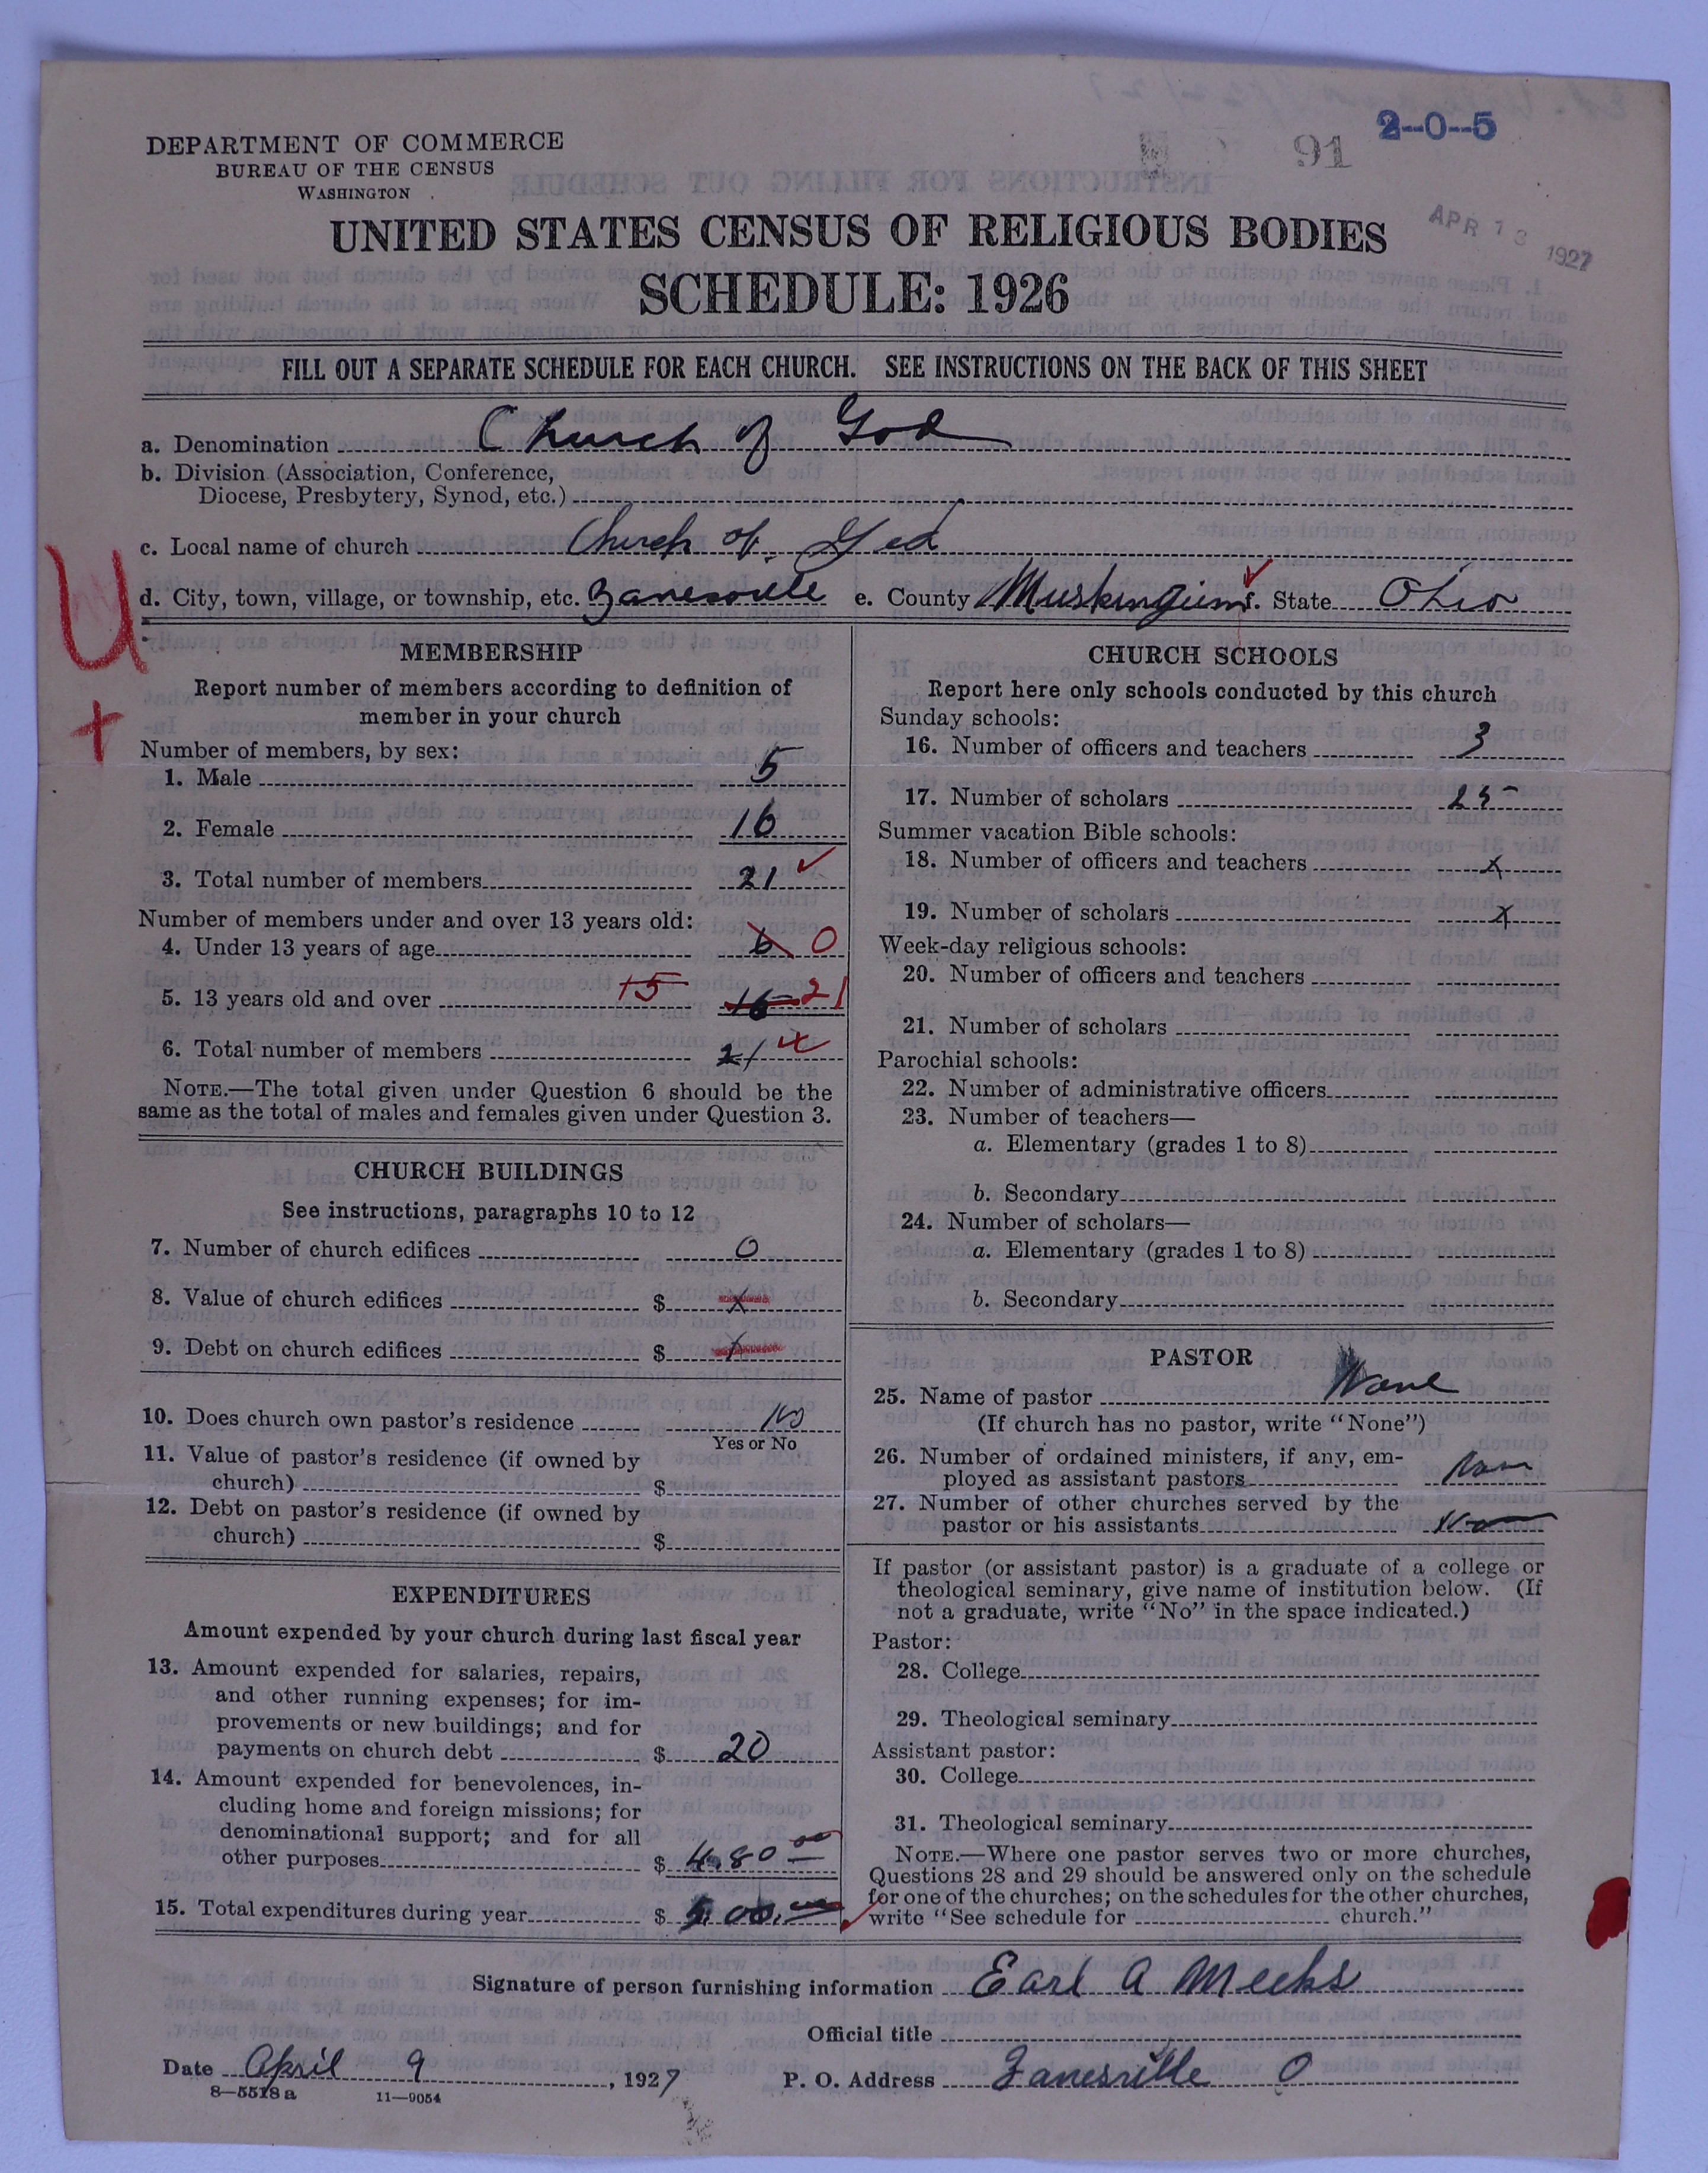 2--0--5
91
DEPARTMENT OF COMMERCE
BUREAU OF THE CENSUS
WASHINGTON
APR 13 1927
UNITED STATES CENSUS OF RELIGIOUS BODIES
SCHEDULE: 1926
FILL OUT A SEPARATE SCHEDULE FOR EACH CHURCH. SEE INSTRUCTIONS ON THE BACK OF THIS SHEET
a. Denomination Church of God
b. Division (Association, Conference,
Diocese, Presbytery, Synod, etc.)
c. Local name of church Church of God
d. City, town, village, or township, etc. Zanesville e. County Muskingum f. State Ohio
U
+
MEMBERSHIP
Report number of members according to definition of
member in your church
Number of members, by sex:
1. Male 5
2. Female 16
3. Total number of members 21 ✓
Number of members under and over 13 years old:
4. Under 13 years of age 6 0
5. 13 years old and over 15 16 21
6. Total number of members 21
NOTE.—The total given under Question 6 should be the
same as the total of males and females given under Question 3.
CHURCH BUILDINGS
See instructions, paragraphs 10 to 12
7. Number of church edifices 0
8. Value of church edifices $ x
9. Debt on church edifices $ x
10. Does church own pastor's residence No
Yes or No
11. Value of pastor's residence (if owned by
church) $
12. Debt on pastor's residence (if owned by
church) $
EXPENDITURES
Amount expended by your church during last fiscal year
13. Amount expended for salaries, repairs,
and other running expenses; for im-
provements or new buildings; and for
payments on church debt $ 20
14. Amount expended for benevolences, in-
cluding home and foreign missions; for
denominational support; and for all
other purposes $ 4.80 00
15. Total expenditures during year $
CHURCH SCHOOLS
Report here only schools conducted by this church
Sunday schools:
16. Number of officers and teachers 3
17. Number of scholars 25
Summer vacation Bible schools:
18. Number of officers and teachers x
19. Number of scholars x
Week-day religious schools:
20. Number of officers and teachers
21. Number of scholars
Parochial schools:
22. Number of administrative officers
23. Number of teachers—
a. Elementary (grades 1 to 8)
b. Secondary
24. Number of scholars—
a. Elementary (grades 1 to 8)
b. Secondary
PASTOR
25. Name of pastor None
(If church has no pastor, write "None")
26. Number of ordained ministers, if any, em-
ployed as assistant pastors None
27. Number of other churches served by the
pastor or his assistants
If pastor (or assistant pastor) is a graduate of a college or
theological seminary, give name of institution below. (If
not a graduate, write "No" in the space indicated.)
Pastor:
28. College
29. Theological seminary
Assistant pastor:
30. College
31. Theological seminary
NOTE.—Where one pastor serves two or more churches,
Questions 28 and 29 should be answered only on the schedule
for one of the churches; on the schedules for the other churches,
write "See schedule for church."
Signature of person furnishing information Earl A Meeks
Official title
Date April 9, 1927 P. O. Address Zanesville O
8—5518 a 11—9054